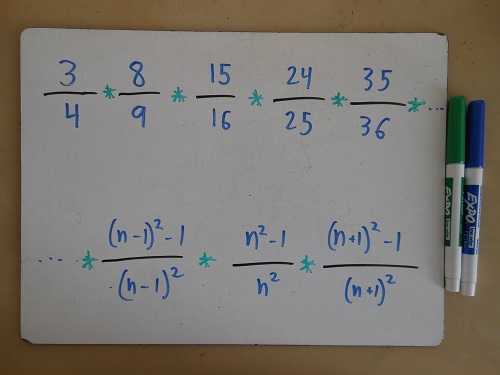 3/4 * 8/9 * 15/16 * 24/25 * 35/36 * ...
... * (n-1)²-1/(n-1)² * n²-1/n² * (n+1)²-1/(n+1)²
EXPO
EXPO